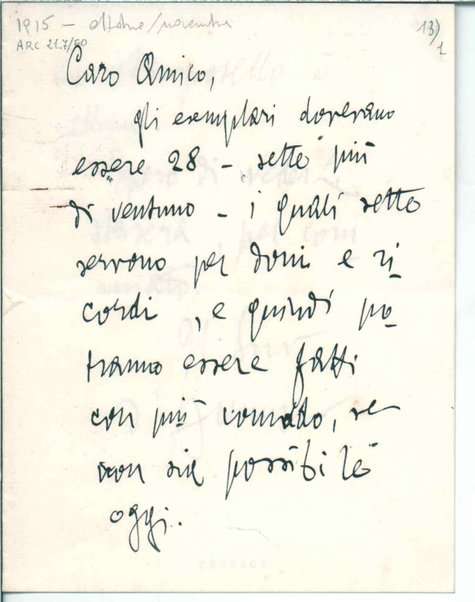 1915 – ottobre/novembre
ARC 21.7/50
13/1
Caro Amico,
gli esemplari dovevano
essere 28 – "sette" più
di ventuno – i quali sette
servono per doni e ri
cordi, e quindi po
tranno essere fatti
con più comodo, se
non sia possibile
oggi.